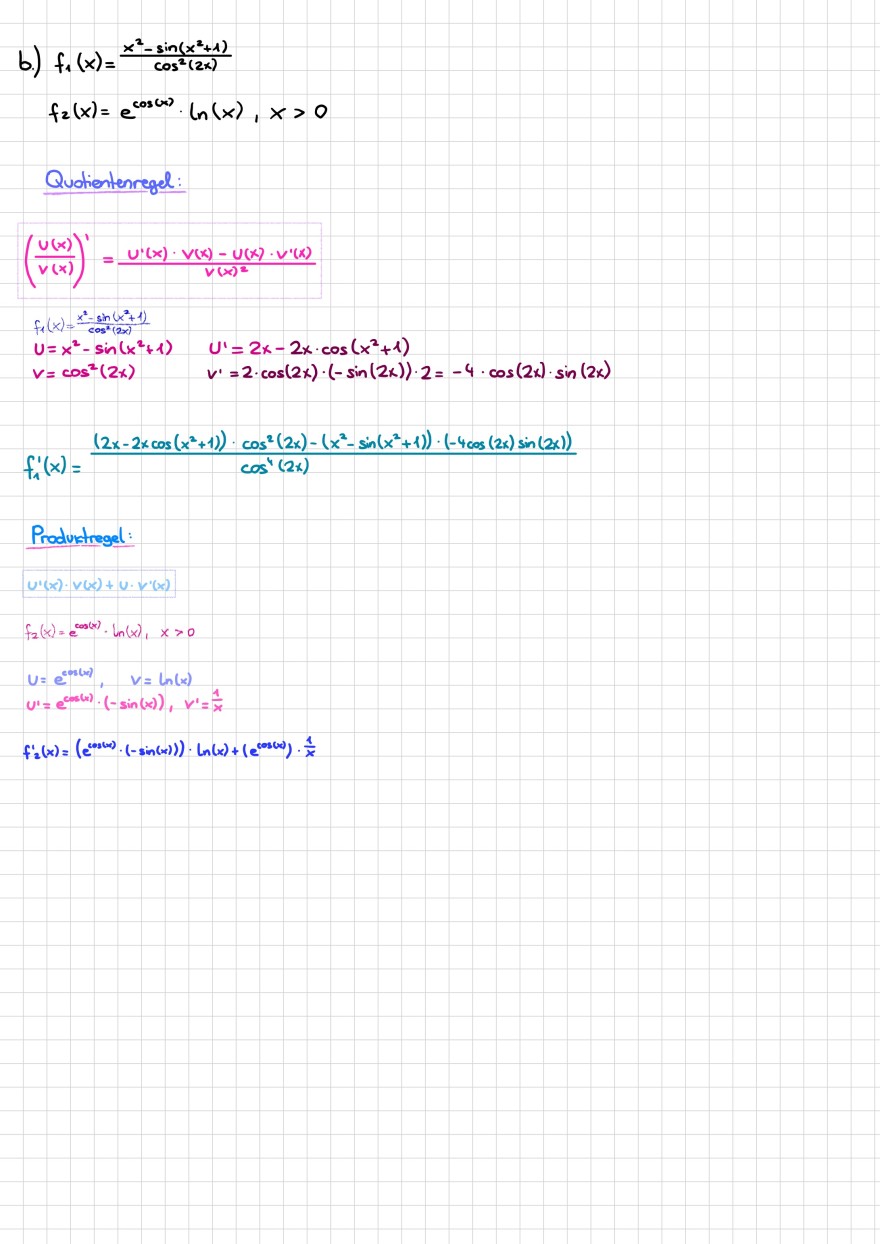 b.) f₁(x) = (x² - sin(x²+1)) / (cos²(2x))
f₂(x) = e^cos(x) · ln(x) , x > 0
Quotientenregel:
(U(x) / V(x))' = (U'(x) · V(x) - U(x) · V'(x)) / (V(x)²)
f₁(x) = (x² - sin(x²+1)) / (cos²(2x))
U = x² - sin(x²+1) U' = 2x - 2x · cos(x²+1)
V = cos²(2x) V' = 2 · cos(2x) · (-sin(2x)) · 2 = -4 · cos(2x) · sin(2x)
f₁'(x) = ((2x - 2x cos(x²+1)) · cos²(2x) - (x² - sin(x²+1)) · (-4 cos(2x) sin(2x))) / (cos⁴(2x))
Produktregel:
U'(x) · V(x) + U · V'(x)
f₂(x) = e^cos(x) · ln(x), x > 0
U = e^cos(x) , V = ln(x)
U' = e^cos(x) · (-sin(x)) , V' = 1/x
f₂'(x) = (e^cos(x) · (-sin(x))) · ln(x) + (e^cos(x)) · 1/x